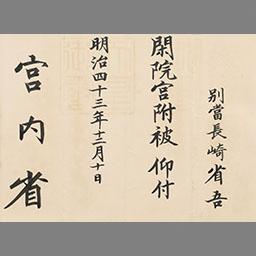 別當長崎省吾
閑院宮附被 仰付
明治四十三年十二月十日
宮内省